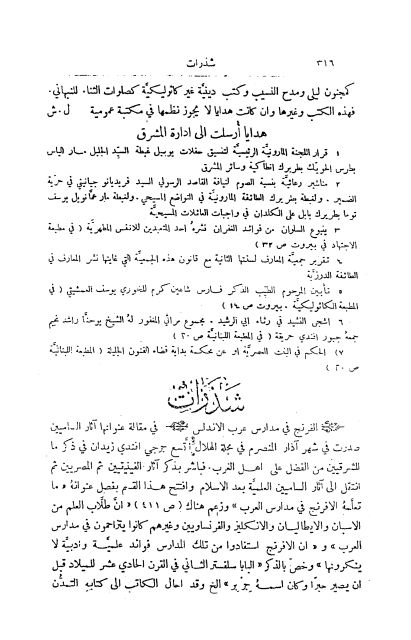 ٣١٦ شذرات
كمجنون ليلى ومدح النسيب وكتب دينيَّة غير كاثوليكيَّة كصلوات الثناء للنبهاني.
فهذه الكتب وغيرها وان كانت هدايا لا يجوز نظمها في مكتبة عمومية ل.ش
هدايا أُرسلت الى ادارة المشرق
١ قرار اللجنة المارونيَّة الرئيسيَّة لتنسيق حفلات يوبيل غبطة السيّد الجليل مار الياس
بطرس الحويّك بطريرك انطاكية وسائر المشرق
٢ مناشير رعائيَّة بنسبة الصوم لنيافة القاصد الرسولي السيد فريديانو جيانيني في حريَّة
الضمير. ولغبطة بطريرك الطائفة المارونيَّة في التواضع المسيحي. ولغبطة مار عمانويل يوسف
توما بطريرك بابل على الكلدان في واجبات العائلات المسيحيَّة
٣ ينبوع السلوان من فوائد الغفران نشرهُ احد المتعبدين للانفس المطهريَّة (في مطبعة
الاجتهاد في بيروت ص ٣٢)
٤ تقرير جمعيَّة المعارف لسنتها الثانية مع قانون هذه الجمعيَّة التي غايتها نشر المعارف في
الطائفة الدرزيَّة
٥ تأبين المرحوم الطيّب الذكر فارس شاهين كرم للخوري يوسف العمشيتي (في
المطبعة الكاثوليكيَّة. بيروت ص ١٦)
٦ اشجى النشيد في رثاء ابي الرشيد. مجموع مراثي المغفور لهُ الشيخ يوحنَّا راشد نخيم
جمعهُ جبور افندي حريقة (في المطبعة اللبنانيَّة ص ٢٠)
٧ الحكم في البنت العصريَّة او عن محكمة بداية قضاء الفنون الجليلة (المطبعة اللبنانيَّة
ص ٢٠)
شذرات
الفرنج في مدارس عرب الاندلس في مقالة عنوانها آثار الساميين
صدرت في شهر آذار المنصرم في مجلة الهلال أتَّسع جرجي افندي زيدان في ذكر ما
للشرقيين من الفضل على اهل الغرب. فباشر بذكر آثار الفينيقيين ثم المصريين ثم
انتقل الى آثار الساميين العلميَّة بعد الاسلام وافتتح هذا القسم بفصل عنوانهُ «ما
تعلَّمهُ الافرنج في مدارس العرب» وزعم هناك (ص ٤١١) «ان طلَّاب العلم من
الاسبان والايطاليان والانكليز والفرنساويين وغيرهم كانوا يتزاحمون في مدارس
العرب» و «ان الافرنج استفادوا من تلك المدارس فوائد علميَّة وادبيَّة لا
ينكرونها» وخصَّ بالذكر «البابا سلفستر الثاني في القرن الحادي عشر للميلاد قبل
ان يصير حبرًا وكان اسمهُ جربر» الخ وقد احال الكاتب الى كتابهِ التمدُّن